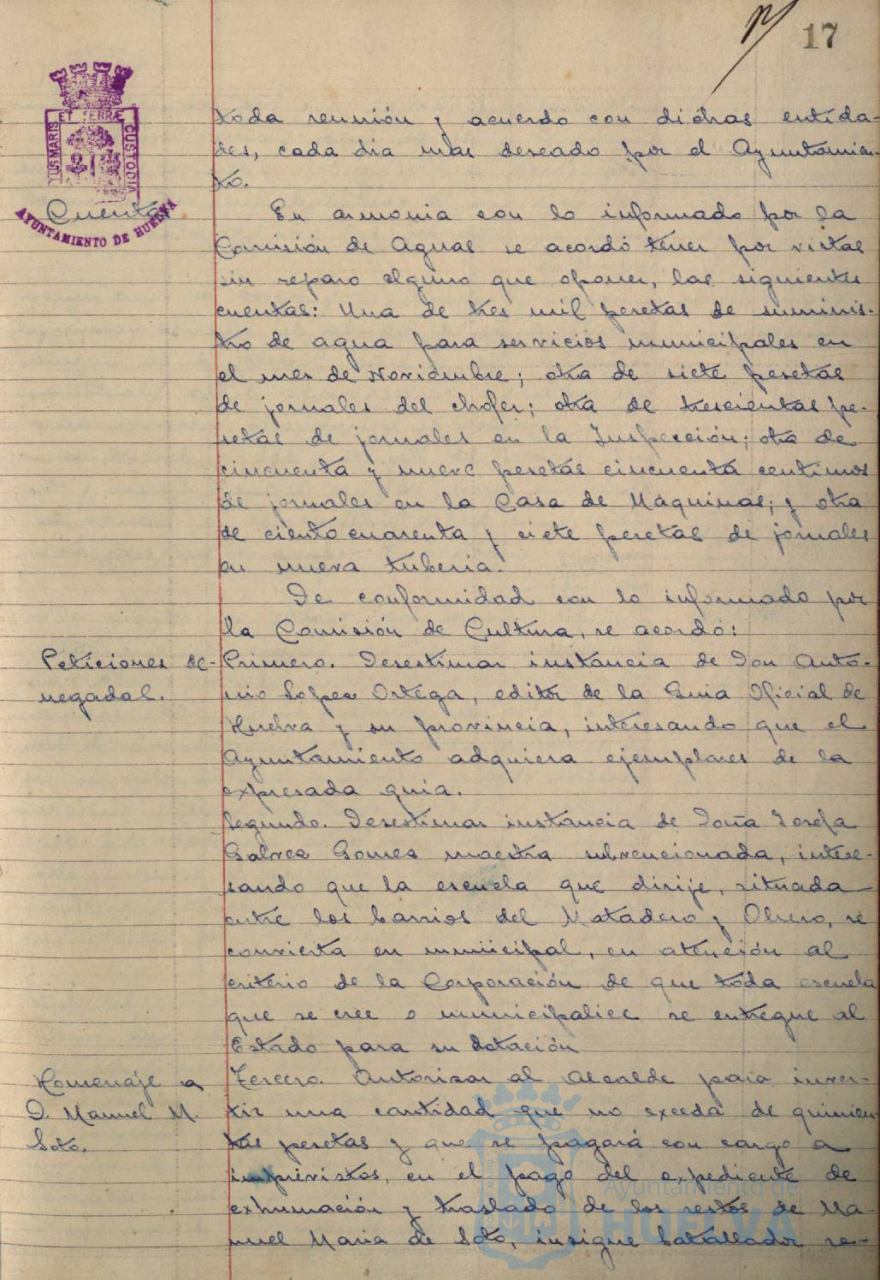 17
ET TERRÆ
CUSTODIA
AYUNTAMIENTO DE HUELVA
toda reunión y acuerdo con dichas entida-
des, cada dia mas deseado por el Ayuntamien-
to.
Cuentas
En armonia con lo informado por la
Comisión de Aguas se acordó tener por vistas
sin reparo alguno que oponer, las siguientes
cuentas: Una de tres mil pesetas de suminis-
tro de agua para servicios municipales en
el mes de Noviembre; otra de siete pesetas
de jornales del chofer; otra de trescientas pe-
setas de jornales en la Inspección; otra de
cincuenta y nueve pesetas cincuenta centimos
de jornales en la Casa de Maquinas; y otra
de ciento cuarenta y siete pesetas de jornales
en nueva tuberia.
De conformidad con lo informado por
la Comisión de Cultura, se acordó:
Peticiones de-
negadas.
Primero. Desestimar instancia de Don Anto-
nio Lopez Ortega, editor de la Guia Oficial de
Huelva y su provincia, interesando que el
Ayuntamiento adquiera ejemplares de la
expresada guia.
Segundo. Desestimar instancia de Doña Josefa
Galvez Gomez maestra subvencionada, intere-
sando que la escuela que dirije, situada
entre los barrios del Matadero y Obrero, se
convierta en municipal, en atención al
criterio de la Corporación de que toda escuela
que se cree o municipalice se entregue al
Estado para su dotación
Homenaje a
D. Manuel M.
Soto.
Tercero. Autorizar al Alcalde para inver-
tir una cantidad que no exceda de quinien-
tas pesetas y que se pagará con cargo a
imprevistos, en el pago del expediente de
exhumación y traslado de los restos de Ma-
nuel Maria de Soto, insigne batallador re-
Ayuntamiento de
HUELVA